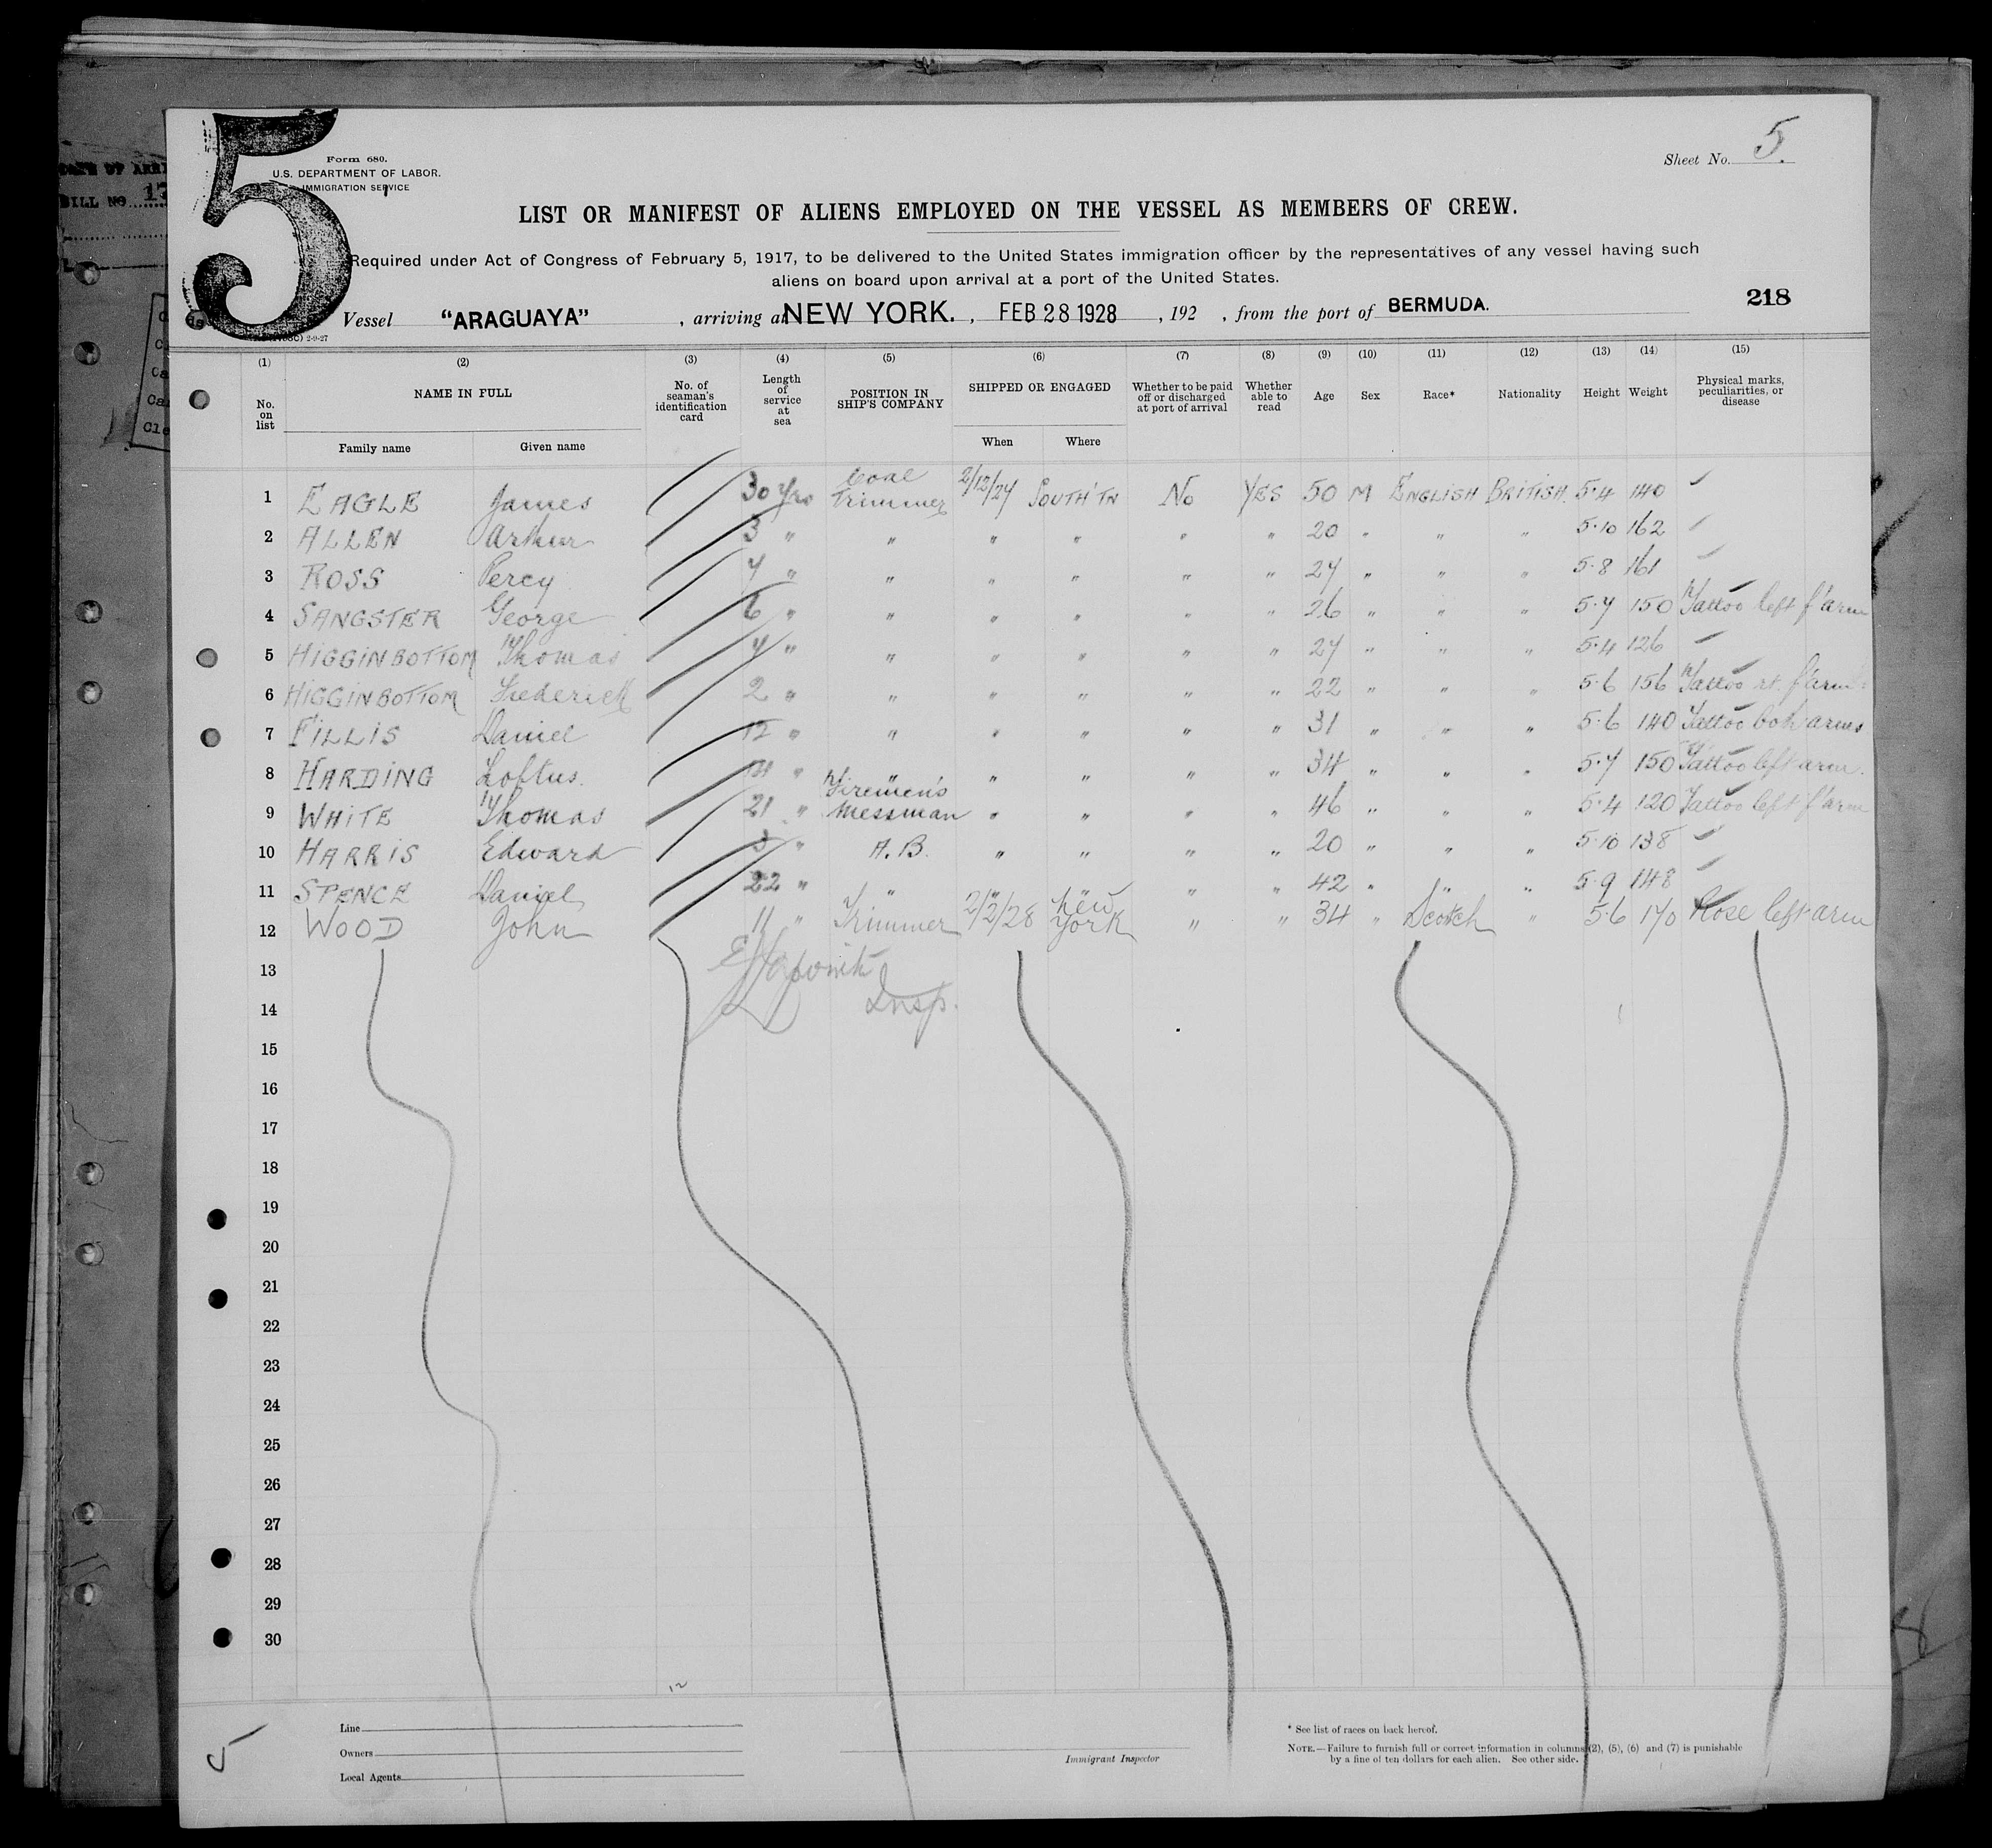 5
Form 680.
U.S. DEPARTMENT OF LABOR.
IMMIGRATION SERVICE
Sheet No. 5.
LIST OR MANIFEST OF ALIENS EMPLOYED ON THE VESSEL AS MEMBERS OF CREW.
Required under Act of Congress of February 5, 1917, to be delivered to the United States immigration officer by the representatives of any vessel having such
aliens on board upon arrival at a port of the United States.
218
Vessel "ARAGUAYA", arriving at NEW YORK., FEB 28 1928, 192 , from the port of BERMUDA.
2-9-27
(1) (2) (3) (4) (5) (6) (7) (8) (9) (10) (11) (12) (13) (14) (15)
No. on list NAME IN FULL No. of seaman's identification card Length of service at sea POSITION IN SHIP'S COMPANY SHIPPED OR ENGAGED Whether to be paid off or discharged at port of arrival Whether able to read Age Sex Race* Nationality Height Weight Physical marks, peculiarities, or disease
Family name Given name When Where
1 EAGLE James 30 yrs Coal Trimmer 2/12/27 SOUTH'TN No YES 50 M ENGLISH BRITISH. 5.4 140 ✓
2 ALLEN Arthur 3 " " " " " " 20 " " " 5.10 162 ✓
3 ROSS Percy 4 " " " " " " 27 " " " 5.8 161 ✓
4 SANGSTER George 6 " " " " " " 26 " " " 5.7 150 Tattoo left f'arm
5 HIGGINBOTTOM Thomas 4 " " " " " " 27 " " " 5.4 126 ✓
6 HIGGINBOTTOM Frederick 2 " " " " " " 22 " " " 5.6 156 Tattoo rt. f'arm
7 FILLIS Daniel 12 " " " " " " 31 " " " 5.6 140 Tattoo both arms
8 HARDING Loftus. " " " " " " 34 " " " 5.7 150 Tattoo left arm.
9 WHITE Thomas 21 " Firemen's Messman " " " " 46 " " " 5.4 120 Tattoo left f'arm
10 HARRIS Edward 3 " A.B. " " " " 20 " " " 5.10 138 ✓
11 SPENCE Daniel 22 " " " " " " 42 " " " 5.9 148 ✓
12 WOOD John 11 " Trimmer 2/2/28 New York " " 34 " Scotch " 5.6 170 Rose left arm
13
14 Insp.
15
16
17
18
19
20
21
22
23
24
25
26
27
28
29
30
12
Line
Owners
Local Agents
Immigrant Inspector
* See list of races on back hereof.
NOTE.—Failure to furnish full or correct information in columns (2), (5), (6) and (7) is punishable
by a fine of ten dollars for each alien. See other side.